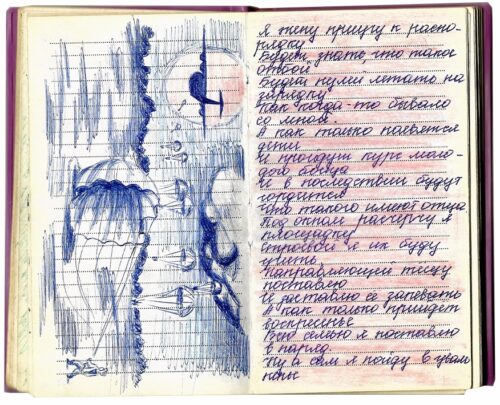 Я жену приучу к распо-
рядку
Будет знать что такое
отбой
Будет пулей летать на
зарядку
Как когда-то бывало
со мной.
А как только появятся
дети
И пройдут курс моло-
дого бойца
И в последствии будут
гордится
Что такого имеют отца.
Под окном расчерчу я
площадку
Строевой я их буду
учить
Направляющей тещу
поставлю
И заставлю её запевать
А как только придет
воскресенье
Всю семью я поставлю
в наряд
Ну а сам я пойду в уволь
ненье